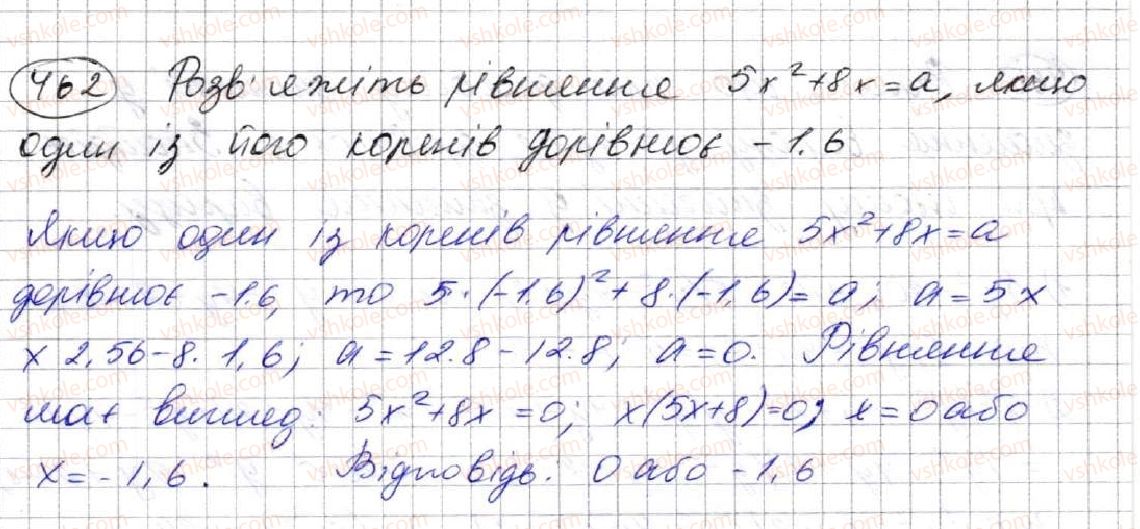 462 Розв'яжіть рівняння 5x²+8x=a, якщо
один із його коренів дорівнює -1.6
Якщо один із коренів рівняння 5x²+8x=a
дорівнює -1.6, то 5·(-1.6)²+8·(-1,6)=a; a=5×
× 2,56-8·1,6; a=12.8-12.8; a=0. Рівняння
має вигляд: 5x²+8x=0; x(5x+8)=0; x=0 або
x=-1,6. Відповідь: 0 або -1,6